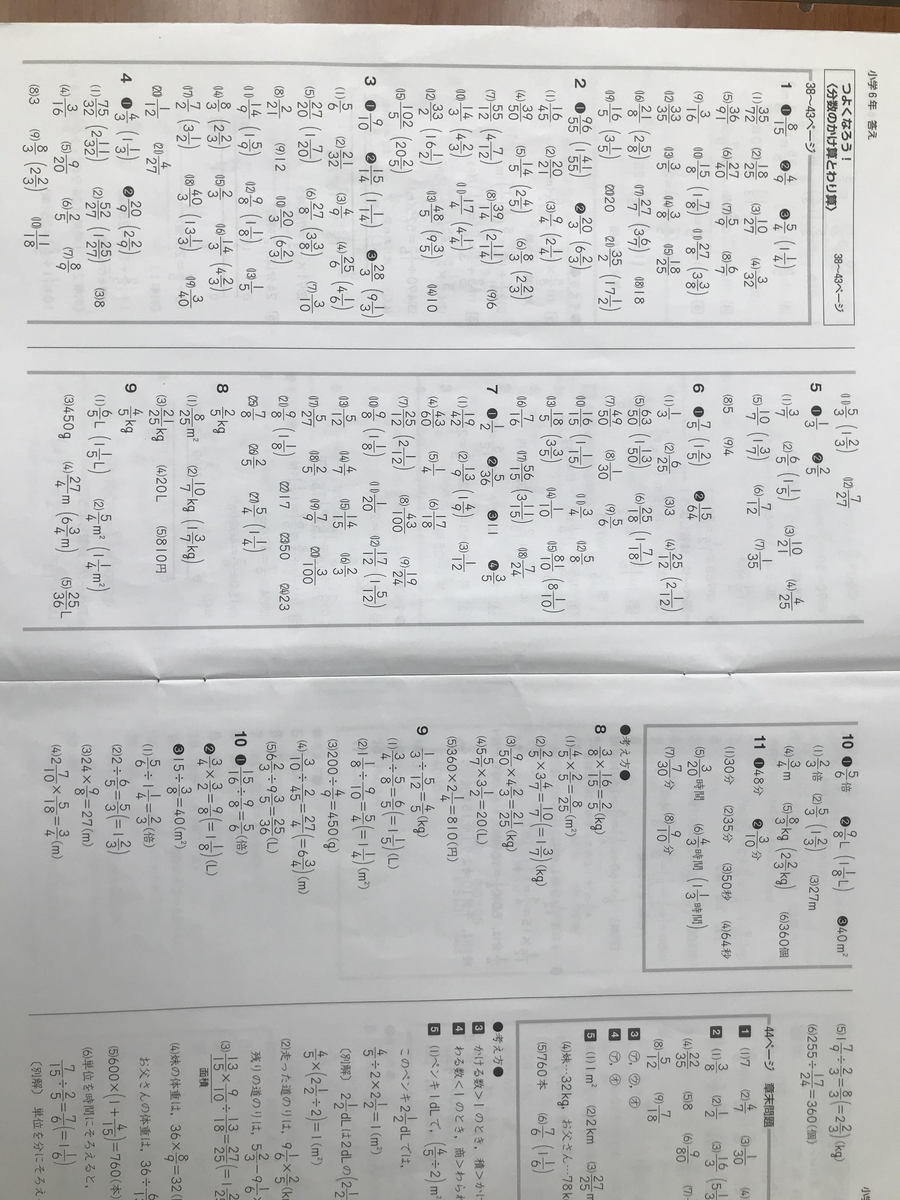 小学6年 答え
つよくなろう！
〈分数のかけ算とわり算〉 38〜43ページ
38〜43ページ
1 ❶8/15 ❷4/9 ❸5/4(1 1/4)
(1)35/72 (2)18/25 (3)10/27 (4)3/32
(5)36/91 (7)5/9 (8)6/7
(9)3/16 (10)15/8(1 7/8) (11)27/8(3 3/8)
(12)33/35 (13)3/5 (14)3/8 (15)18/25
(16)21/8(2 5/8) (17)27/7(3 6/7) (18)18
(19)16/5(3 1/5) (20)20 (21)35/2(17 1/2)
2 ❶96/55(1 41/55) ❷20/3(6 2/3)
(1)16/45 (2)20/21 (3)9/4(2 1/4)
(4)39/50 (5)14/5(2 4/5) (6)8/3(2 2/3)
(7)55/12(4 7/12) (8)39/14(2 11/14) (9)6
(10)14/3(4 2/3) (11)17/4(4 1/4)
(12)33/2(16 1/2) (13)48/5(9 3/5) (14)10
(15)102/5(20 2/5)
3 ❶9/10 ❷15/14(1 1/14) ❸28/3(9 1/3)
(1)5/6 (2)21/32 (3)4/9 (4)25/6(4 1/6)
(5)27/20(1 7/20) (6)27/8(3 3/8) (7)3/10
(8)2/21 (9)12 (10)20/3(6 2/3)
(11)14/9(1 5/9) (12)9/8(1 1/8) (13)1/5
(14)8/3(2 2/3) (15)2/5 (16)14/3(4 2/3)
(17)7/2(3 1/2) (18)40/3(13 1/3) (19)3/40
(20)1/12 (21)4/27
4 ❶4/3(1 1/3) ❷20/9(2 2/9)
(1)75/32(2 11/32) (2)52/27(1 25/27) (3)8
(4)3/16 (5)9/20 (6)2/5 (7)8/9
(8)3 (9)8/3(2 2/3) (10)11/18
(11)5/3(1 2/3) (12)7/27
5 ❶1/3 ❷2/5
(1)3/7 (2)6/5(1 1/5) (3)10/21 (4)4/25
(5)10/7(1 3/7) (6)1/12 (7)1/35
(8)5 (9)4
6 ❶7/5(1 2/5) ❷15/64
(1)1/3 (2)6/25 (3)3 (4)25/12(2 1/12)
(5)63/50(1 13/50) (6)25/18(1 7/18)
(7)49/50 (8)1/30 (9)5/6
(10)16/15(1 1/15) (11)3/4 (12)5/8
(13)18/5(3 3/5) (14)1/10 (15)81/10(8 1/10)
(16)7/16 (17)56/15(3 11/15) (18)7/24
7 ❶1/2 ❷5/36 ❸11 ❹3/5
(1)19/42 (2)13/9(1 4/9) (3)1/12
(4)43/60 (5)1/4 (6)17/18
(7)25/12(2 1/12) (8)43/100 (9)19/24
(10)9/8(1 1/8) (11)1/20 (12)17/12(1 5/12)
(13)5/12 (14)4/7 (15)14/15 (16)2/3
(17)5/27 (18)2/5 (19)7/9 (20)3/100
(21)9/8(1 1/8) (22)17 (23)50 (24)23
(25)7/8 (26)2/5 (27)5/4(1 1/4)
8 2/5kg
(1)8/25m² (2)10/7kg(1 3/7kg)
(3)21/25kg (4)20L (5)810円
9 4/5kg
(1)6/5L(1 1/5L) (2)5/4m²(1 1/4m²)
(3)450g (4)27/4m(6 3/4m) (5)25/36L
10 ❶5/6倍 ❷9/8L(1 1/8L) ❸40m²
(1)2/3倍 (2)5/3(1 2/3) (3)27m
(4)3/4m (5)8/3kg(2 2/3kg) (6)360個
11 ❶48分 ❷3/10分
(1)30分 (2)35分 (3)50秒 (4)64秒
(5)3/20時間 (6)4/3時間(1 1/3時間)
(7)7/30分 (8)9/10分
●考え方●
8 3/8×16/15=2/5(kg)
(1)4/5×2/5=8/25(m²)
(2)2/5×3 4/7=10/7(=1 3/7)(kg)
(3)9/50×4 2/3=21/25(kg)
(4)5 5/7×3 1/2=20(L)
(5)360×2 1/4=810(円)
9 1/3÷5/12=4/5(kg)
(1)3/4÷5/8=6/5(=1 1/5)(L)
(2)1 1/8÷9/10=5/4(=1 1/4)(m²)
(3)200÷4/9=450(g)
(4)3/10÷2/45=27/4(=6 3/4)(m)
(5)6 2/3÷9 3/5=25/36(L)
10 ❶15/16÷9/8=5/6(倍)
❷3/4×3/2=9/8(=1 1/8)(L)
❸15÷3/8=40(m²)
(1)5/6÷1 1/4=2/3(倍)
(2)2÷6/5=5/3(=1 2/3)
(3)24×9/8=27(m)
(4)2 7/10×5/18=3/4(m)
(5)1 7/9÷2/3=8/3(=2 2/3)(kg)
(6)255÷17/24=360(個)
44ページ 章末問題
1 (1)7 (2)4/7 (3)1/30 (4)
2 (1)3/8 (2)1/2 (3)16/3(5 1/3
(4)22/35 (5)8 (6)9/80 (7)
(8)5/12 (9)7/18
3 ㋐, ㋒, ㋔
4 ㋐, ㋔
5 (1)1m² (2)2km (3)27/25m
(4)妹…32kg, お父さん…78k
(5)760本 (6)7/6(1 1/6)
●考え方●
3 かける数>1のとき, 積>かけ
4 わる数<1のとき, 商>わられ
5 (1)ペンキ1dLで, (4/5÷2)m²
このペンキ2 1/2dLでは,
4/5÷2×2 1/2=1(m²)
〔別解〕 2 1/2dLは2dLの(2 1/2
4/5×(2 1/2÷2)=1(m²)
(2)走った道のりは, 9 1/6×2/5(k
残りの道のりは, 5 2/3−9 1/6
(3)1 13/15×9/10÷1 3/18=27/25(=1 2
面積
(4)妹の体重は, 36×8/9=32(
お父さんの体重は, 36÷6/1
(5)600×(1+4/15)=760(本)
(6)単位を時間にそろえると,
7/15÷2/5=7/6(=1 1/6)
〔別解〕 単位を分にそろえ